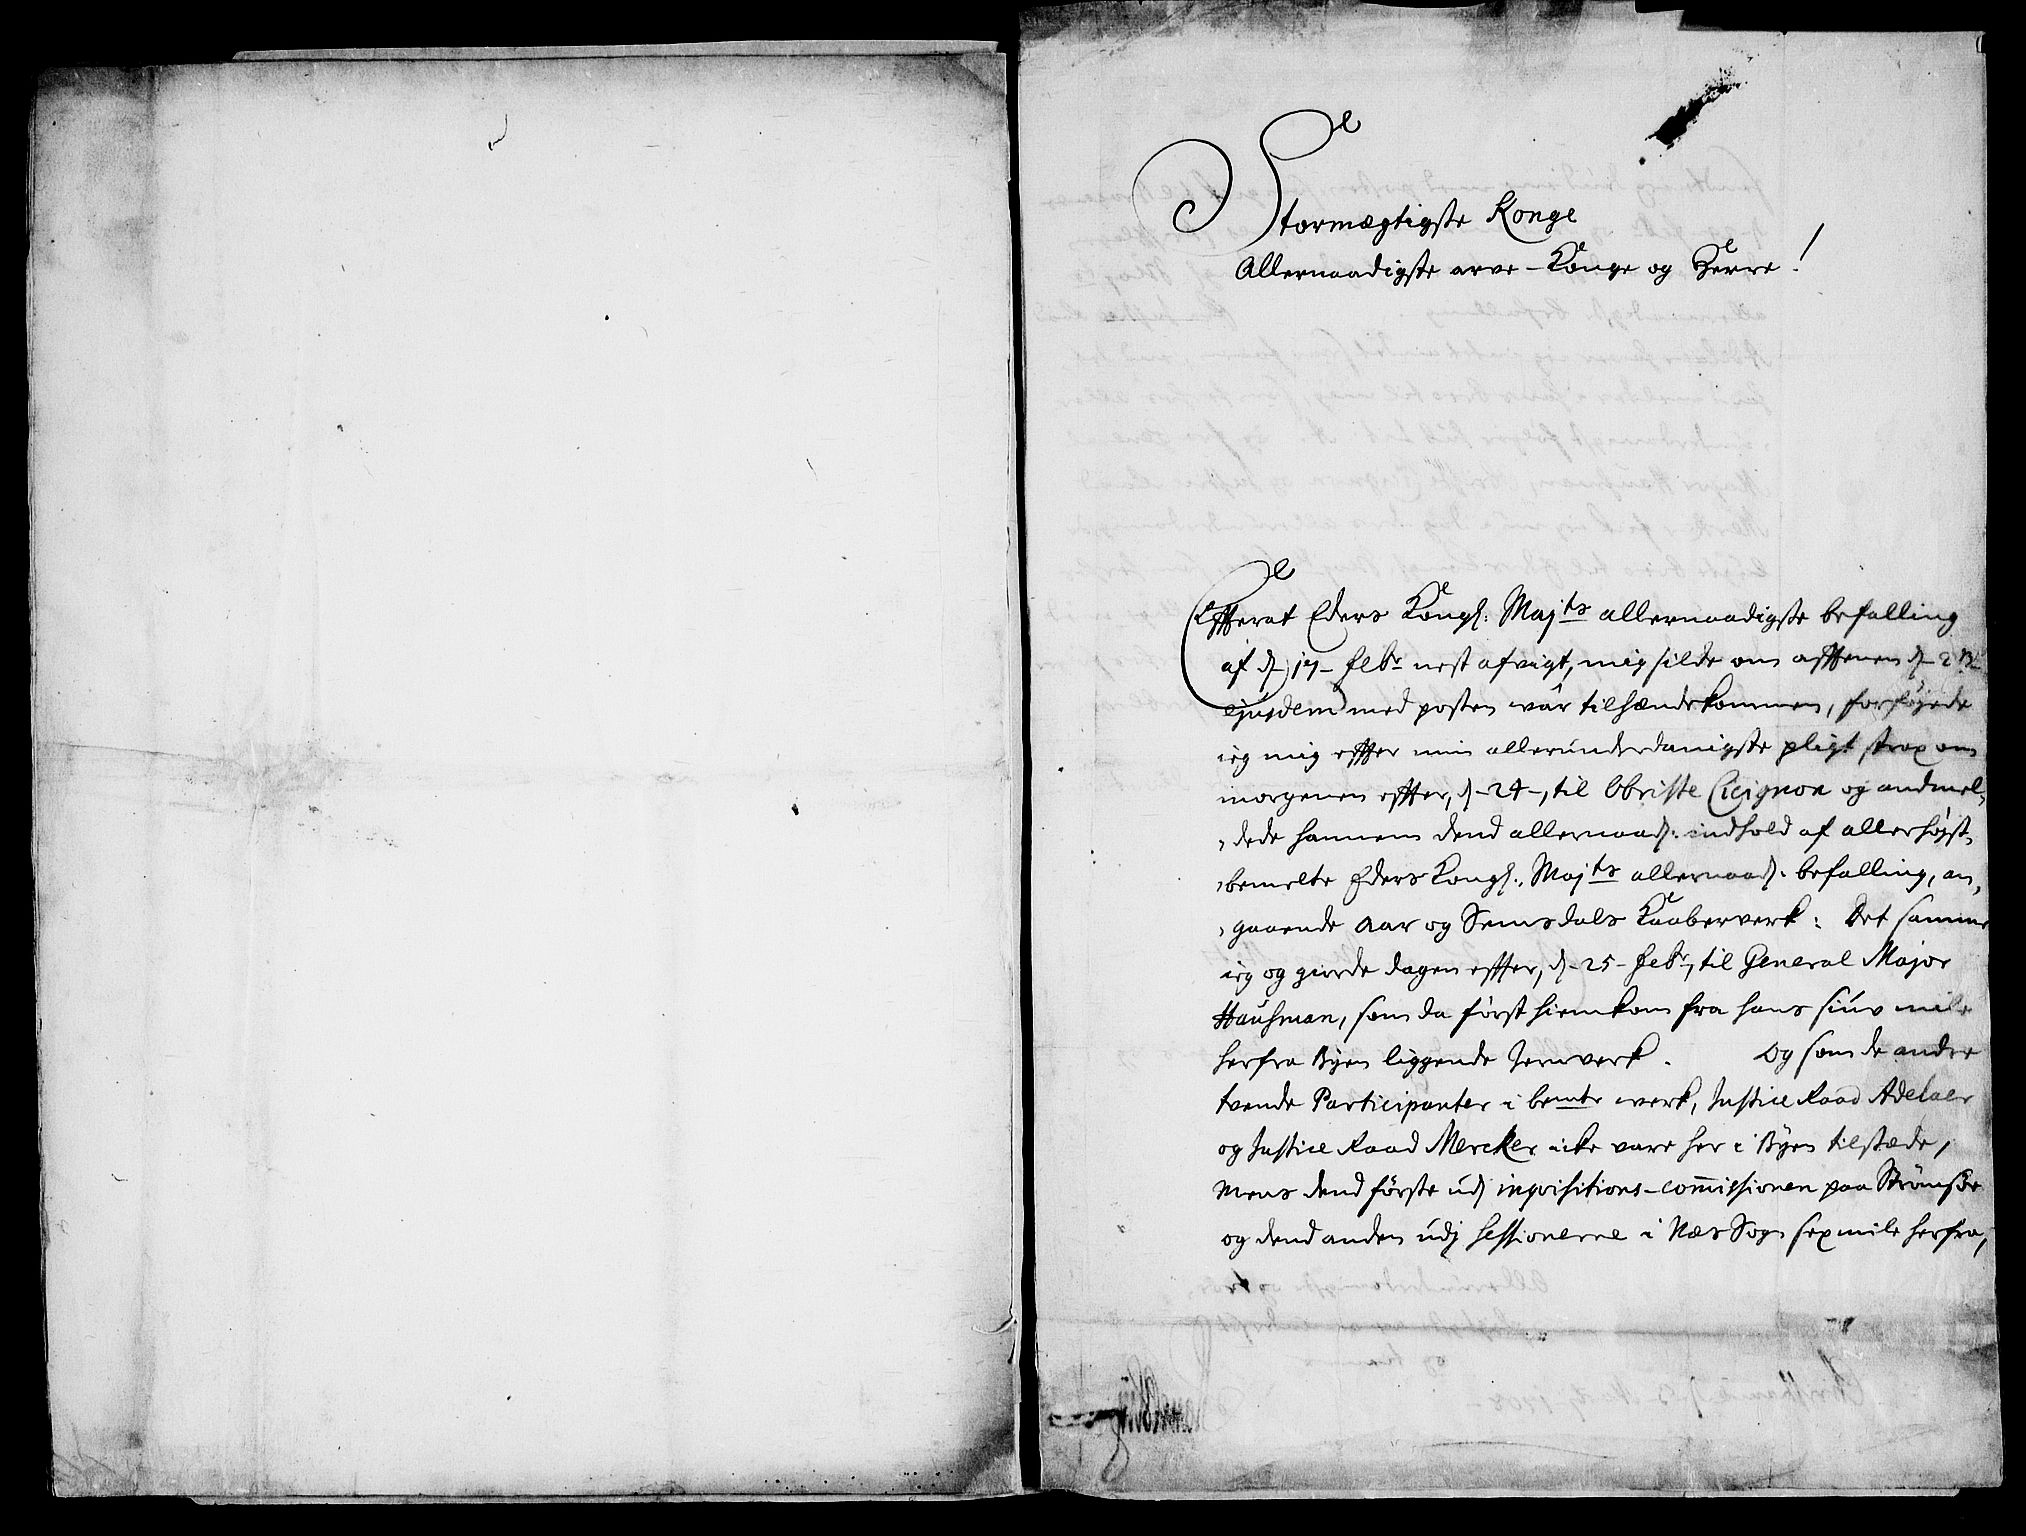 Stormægtigste Konge
Allernaadigste arve-Konge og Herre!
Effterat Eders Kongl: Majts allernaadigste befalling
af d. 17 Febr nest afvigt, mig silde om afftenen d. 23
ejusdem med posten wâr tilhændekommen, forföjede
ieg mig effter min allerunderdanigste pligt strax om
morgenen effter, d. 24, til Obriste Cicignon og andmel-
dede hannem dend allernaad: indhold af allerhöjst-
bemelte Eders Kongl. Majts allernaad: befalling, an-
gaaende Aar og Semsdals Kaaberverk: Det samme
ieg og giorde dagen effter, d. 25 Febr, til General Major
Hausman, som da först hiemkom fra hans siuv mile
herfra Byen liggende Jernverk. Og som de andre
tvende Participanter i bemte werk, Justice Raad Adelaer
og Justice Raad Mercker icke vare her i Byen tilstæde,
Mens dend förste udj inqvisitions-commissionen paa Strömsöe
og dend anden udj Sessionerne i Næs Sogn sex mile herfra,